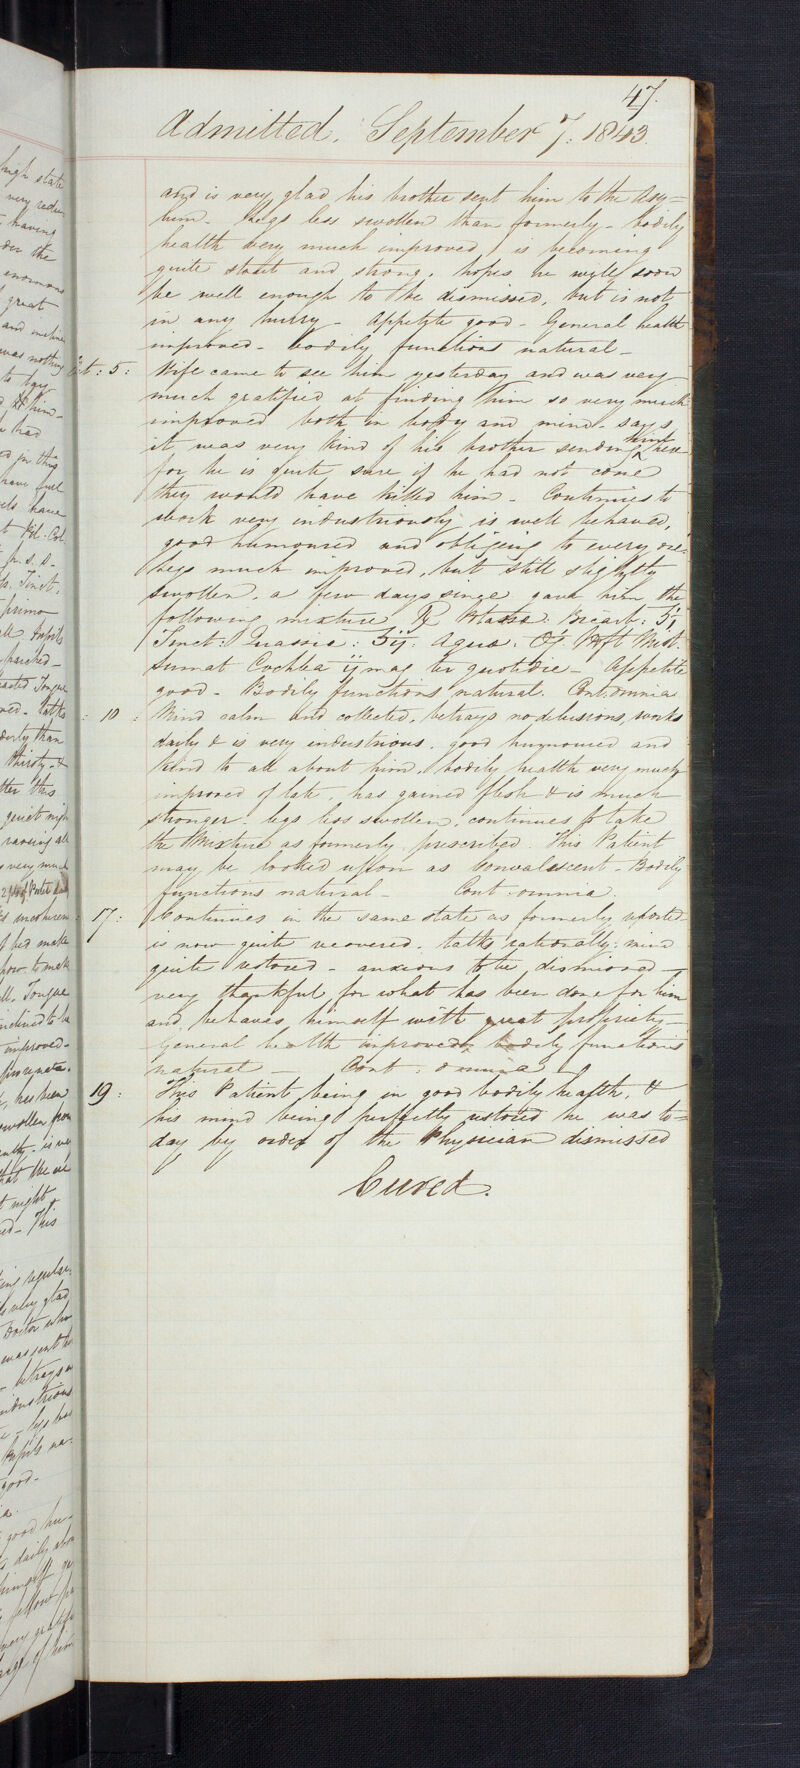 47.
Admitted. September 7: 1843.
and is very glad his brother sent him to the Asy=
lum. Legs less swollen than formerly - bodily
health very much improved, is becoming
quite stout and strong. hopes he will soon
be well enough to be dismissed, but is not
in any hurry - Appetite good - General health
improved - bodily functions natural -
Oct: 5: Wife came to see him yesterday and was very
much gratified at finding him so very much
improved both in body and mind - says
it was very kind of his brother sending him here
for he is quite sure if he had not come
they would have killed him - Continues to
work very industriously, is well behaved,
good humoured and obliging to every one.
Legs much improved, but still slightly
swollen. a few days since gave him the
following mixture ℞ Potassa: Bicart: ʒi
Tinct: Quassia: ʒij: Aqua: Oj. ft Mist.
Sumat Cochlea ij mag ter quotidie - Appetite
good - Bodily functions natural. Cont: omnia
: 10 : Mind calm and collected, betrays no delusions, works
daily & is very industrious. good humoured and
kind to all about him. bodily health very much
improved of late, has gained flesh & is much
stronger. legs less swollen, continues to take
the Mixture as formerly prescribed. This Patient
may be looked upon as Convalescent - Bodily
functions natural - Cont: omnia.
: 17: Continues in the same state as formerly reported
is now quite recovered. talks rationally; mind
quite restored - anxious to be dismissed -
very thankful for what has been done for him
and behaves himself with great propriety -
General health improved, bodily functions
natural - Cont: omnia -
19: This Patient being in good bodily health, &
his mind being perfectly restored he was to=
day by order of the Physician dismissed
Cured.
high state
having
der the
enormous
great
and
was nothing
to
him -
had
Pil. Col.
p. s. s.
Tinct.
primo
Pupils
parched -
Tongue
talks
than
thirsty - &
this
quiet night
raving all
very much
bed make
how to make
Tongue
inclined to be
improved -
has been
swollen from
night
This
very glad
Doctor who
was sent to
betrays no
industrious
legs less
Pupils na-
good -
good hu-
daily
himself
fellow
very
of him